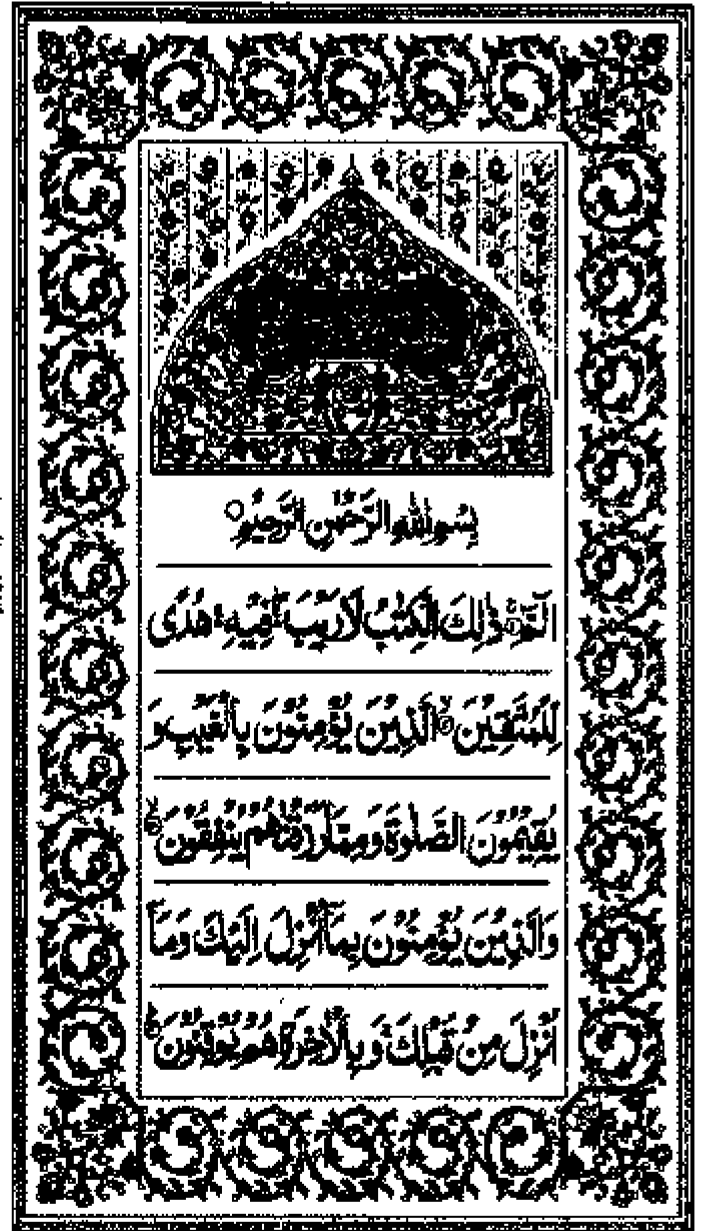 بِسْمِ اللهِ الرَّحْمٰنِ الرَّحِيْمِ ○
الٓمّٓ ۚ۝۱ ذٰلِكَ الْكِتٰبُ لَا رَيْبَ ۛ فِيْهِ ۛ هُدًى
لِّلْمُتَّقِيْنَ ۙ۝۲ الَّذِيْنَ يُؤْمِنُوْنَ بِالْغَيْبِ وَ
يُقِيْمُوْنَ الصَّلٰوةَ وَمِمَّا رَزَقْنٰهُمْ يُنْفِقُوْنَ ۙ۝۳
وَالَّذِيْنَ يُؤْمِنُوْنَ بِمَآ اُنْزِلَ اِلَيْكَ وَمَآ
اُنْزِلَ مِنْ قَبْلِكَ ۚ وَبِالْاٰخِرَةِ هُمْ يُوْقِنُوْنَ ۝۴